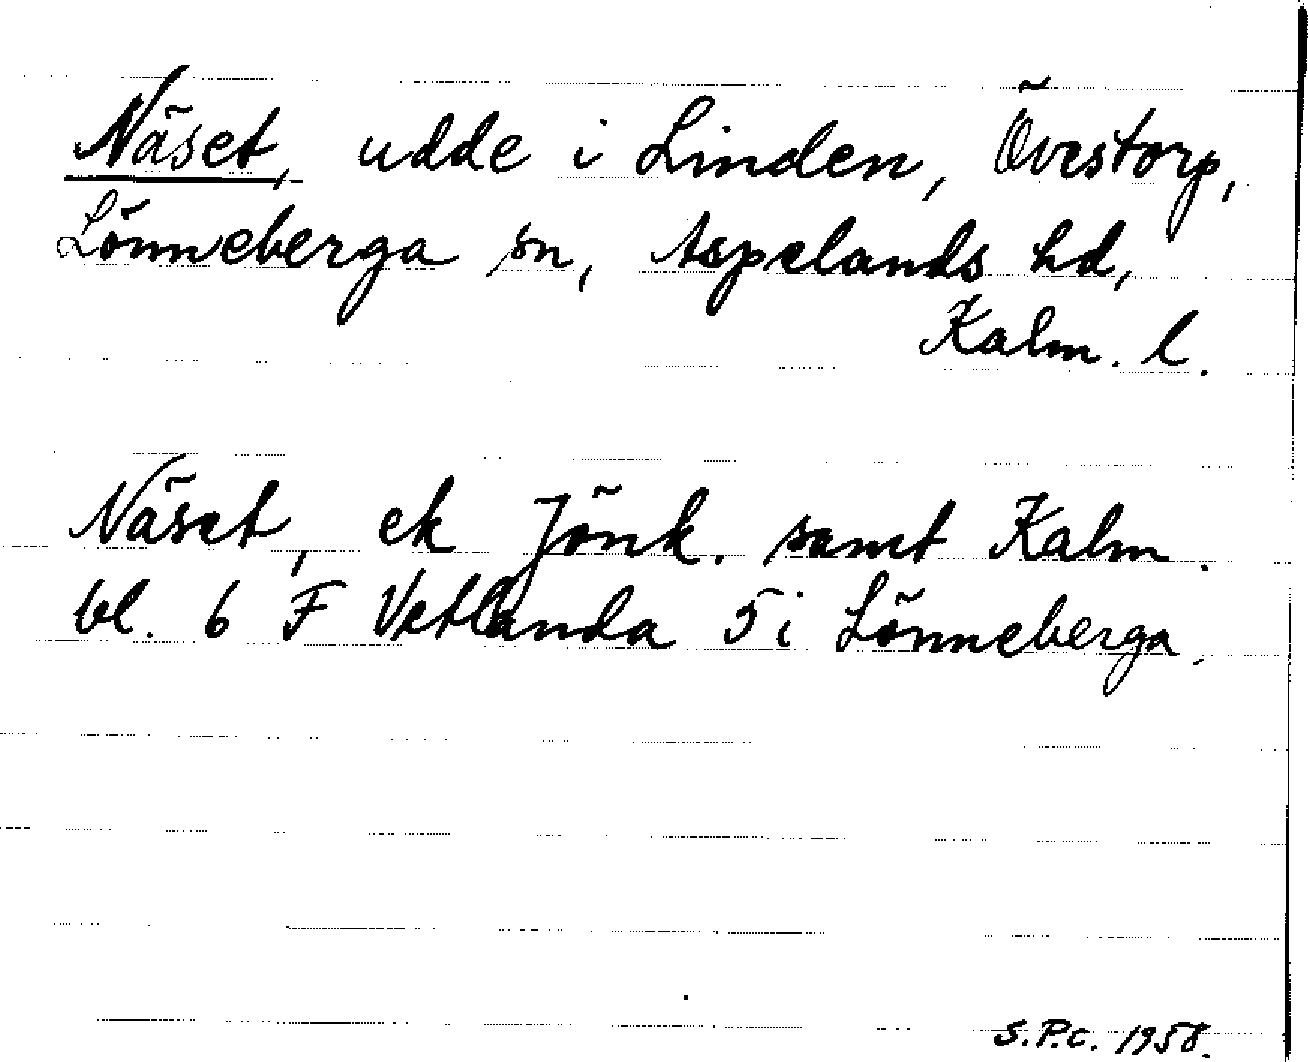 Näset, udde i Linden, Övrstorp,
Lönneberga sn, Aspelands hd,
Kalm. l.
Näset, ek Jönk. samt Kalm.
bl. 6 F Vetlanda 5 i Lönneberga.
S.P.C. 1958.